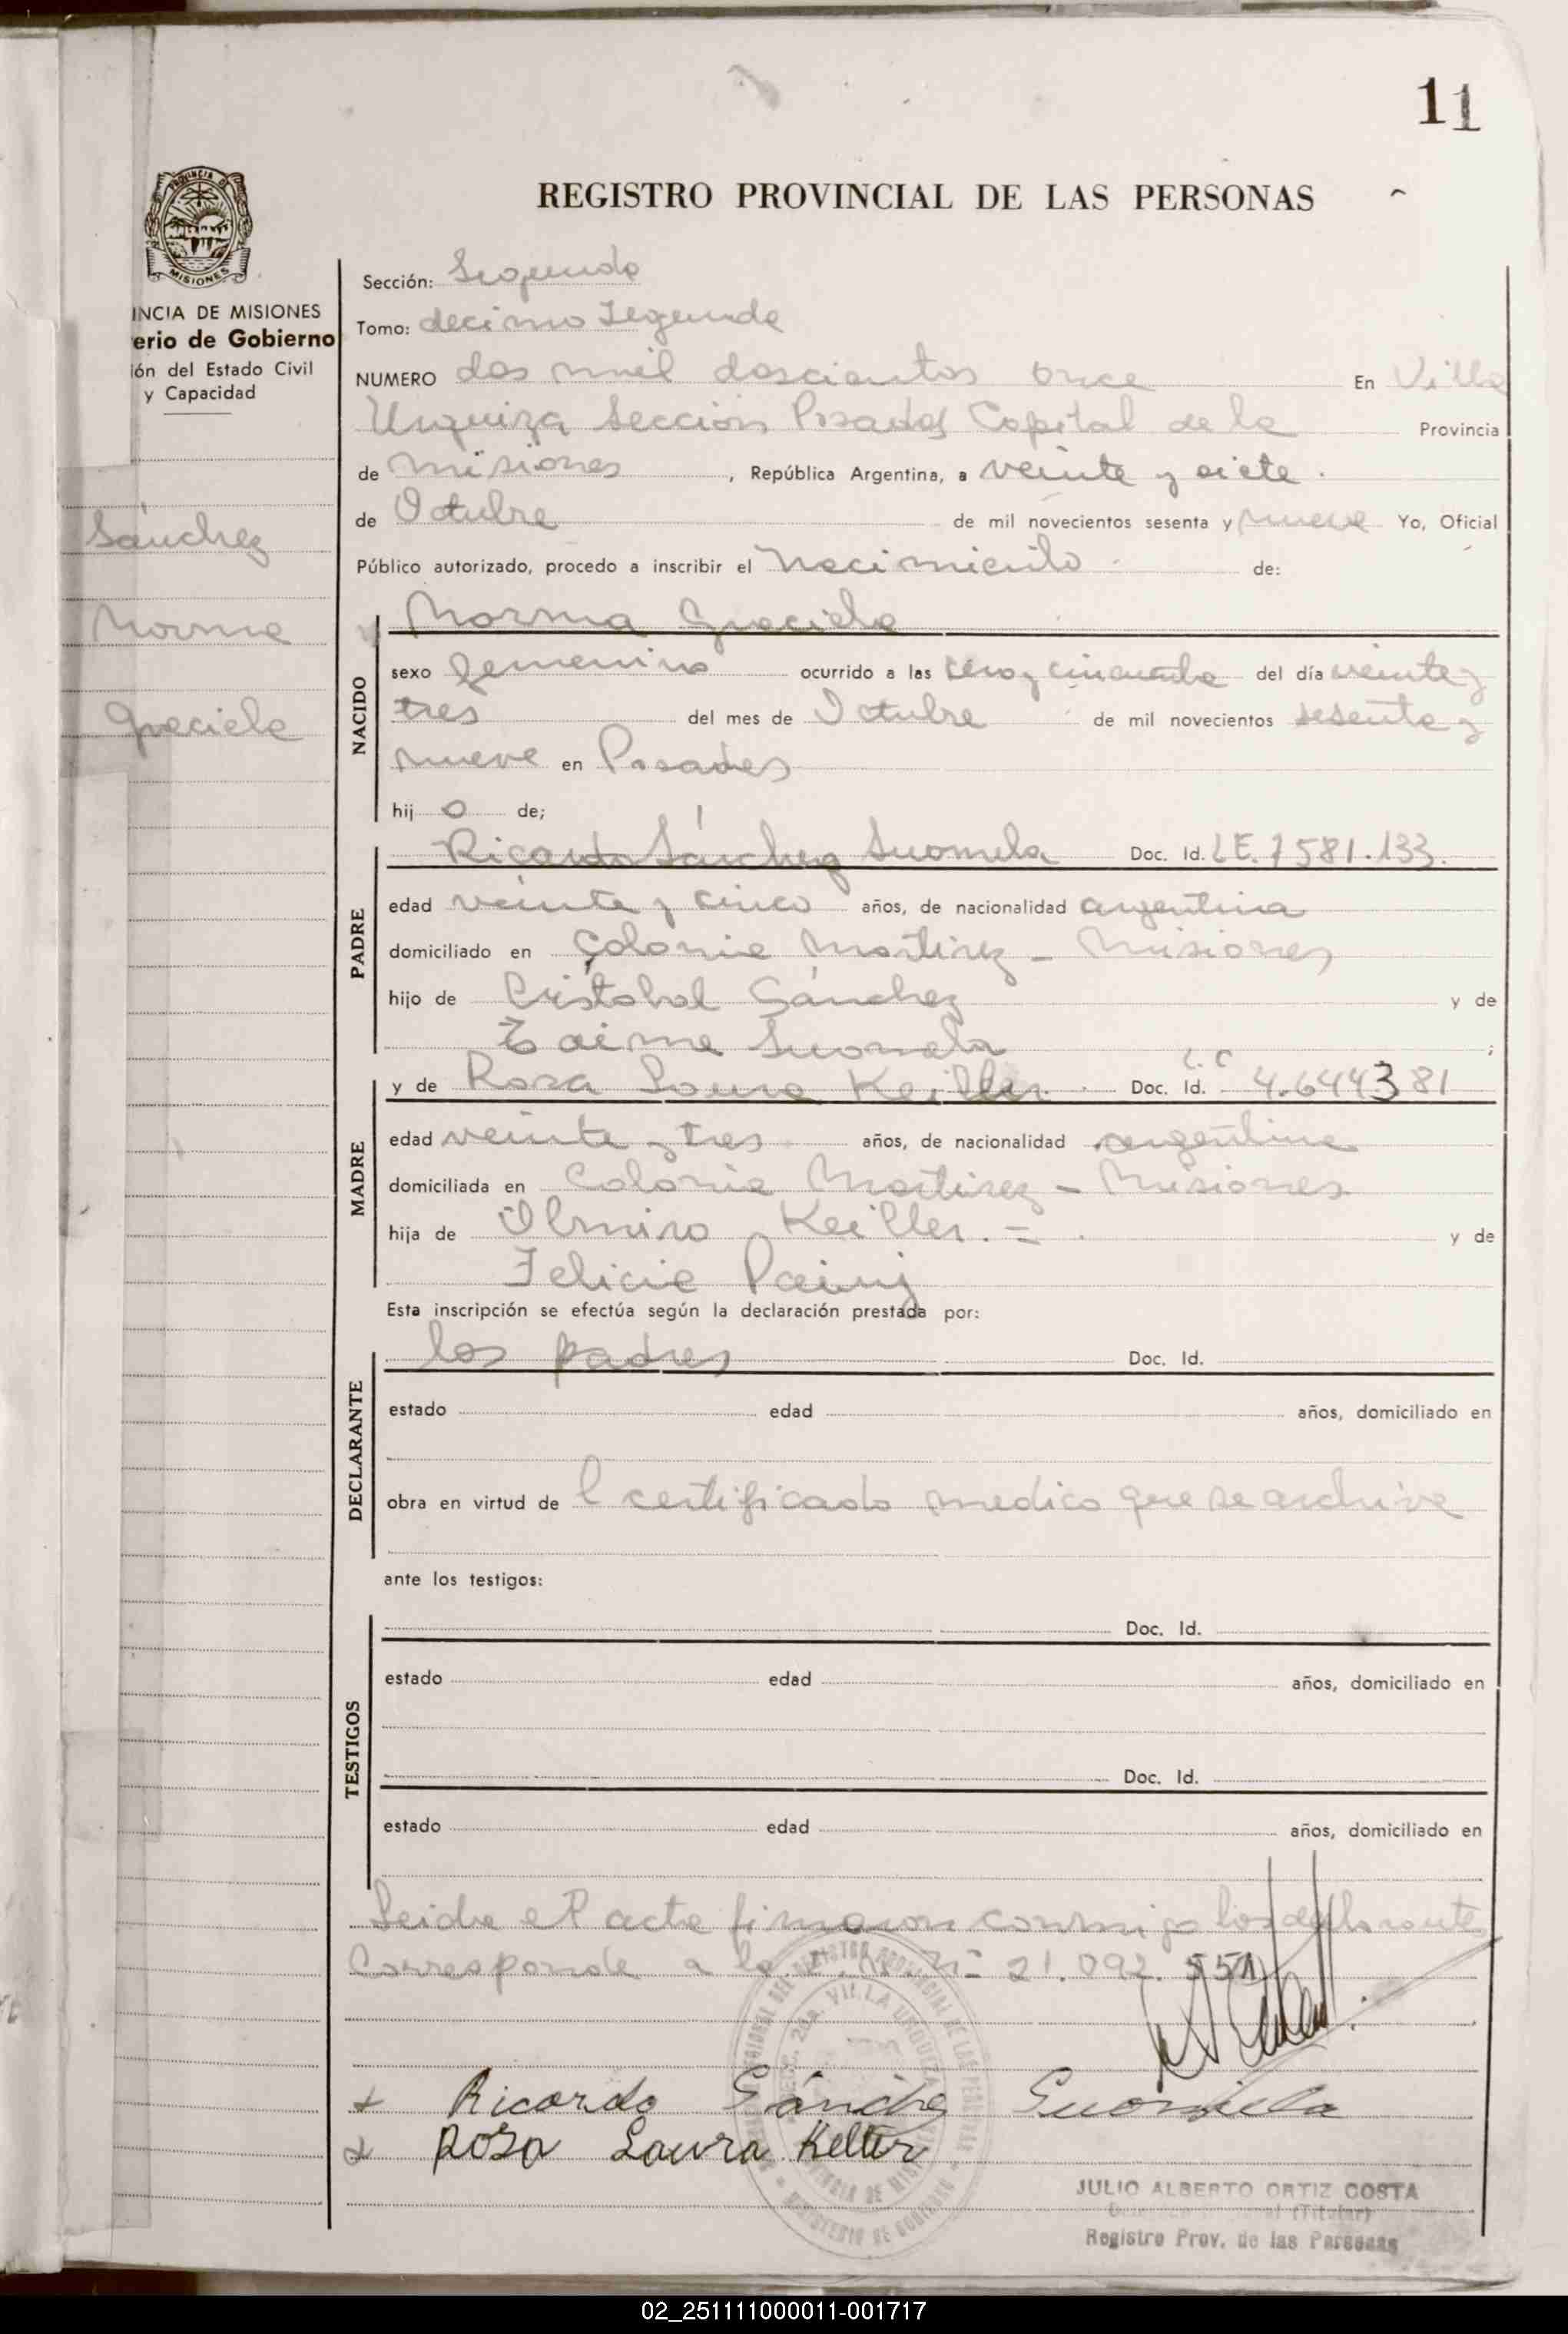 11
REGISTRO PROVINCIAL DE LAS PERSONAS
PROVINCIA DE
MISIONES
INCIA DE MISIONES
erio de Gobierno
ión del Estado Civil
y Capacidad
Sánchez
Norma
Graciela
Sección: Segunda
Tomo: decimo Segunda
NUMERO dos mil doscientos once En Villa
Urquiza Sección Posadas Capital de la Provincia
de Misiones, República Argentina, a veinte y siete
de Octubre de mil novecientos sesenta y nueve Yo, Oficial
Público autorizado, procedo a inscribir el Nacimiento de:
NACIDO
Norma Graciela
sexo femenino ocurrido a las cero y cincuenta del día veinte y
tres del mes de Octubre de mil novecientos sesenta y
nueve en Posadas
hij o de;
PADRE
Ricardo Sánchez Suomela Doc. Id. L.E. 7581.133.
edad veinte y cinco años, de nacionalidad argentina
domiciliado en Colonia Martirez - Misiones
hijo de Cristobal Sánchez y de
Taime Suomela ;
MADRE
y de Rosa Laura Keiller Doc. Id. L.C 4.644381
edad veinte y tres años, de nacionalidad argentina
domiciliada en Colonia Martirez - Misiones
hija de Olmiro Keiller. = y de
Felicia
Esta inscripción se efectúa según la declaración prestada por:
DECLARANTE
los padres Doc. Id.
estado edad años, domiciliado en
obra en virtud de l certificado medico que se archiva
ante los testigos:
TESTIGOS
Doc. Id.
estado edad años, domiciliado en
Doc. Id.
estado edad años, domiciliado en
Leida el acta firmaron conmigo los declarante
Corresponde a la 21.092.551
Ricardo Sánchez Suomela
Rosa Laura Kelter
VILLA URQUIZA
MINISTERIO DE GOBIERNO
JULIO ALBERTO ORTIZ COSTA
(Titular)
Registro Prov. de las Personas
02_251111000011-001717